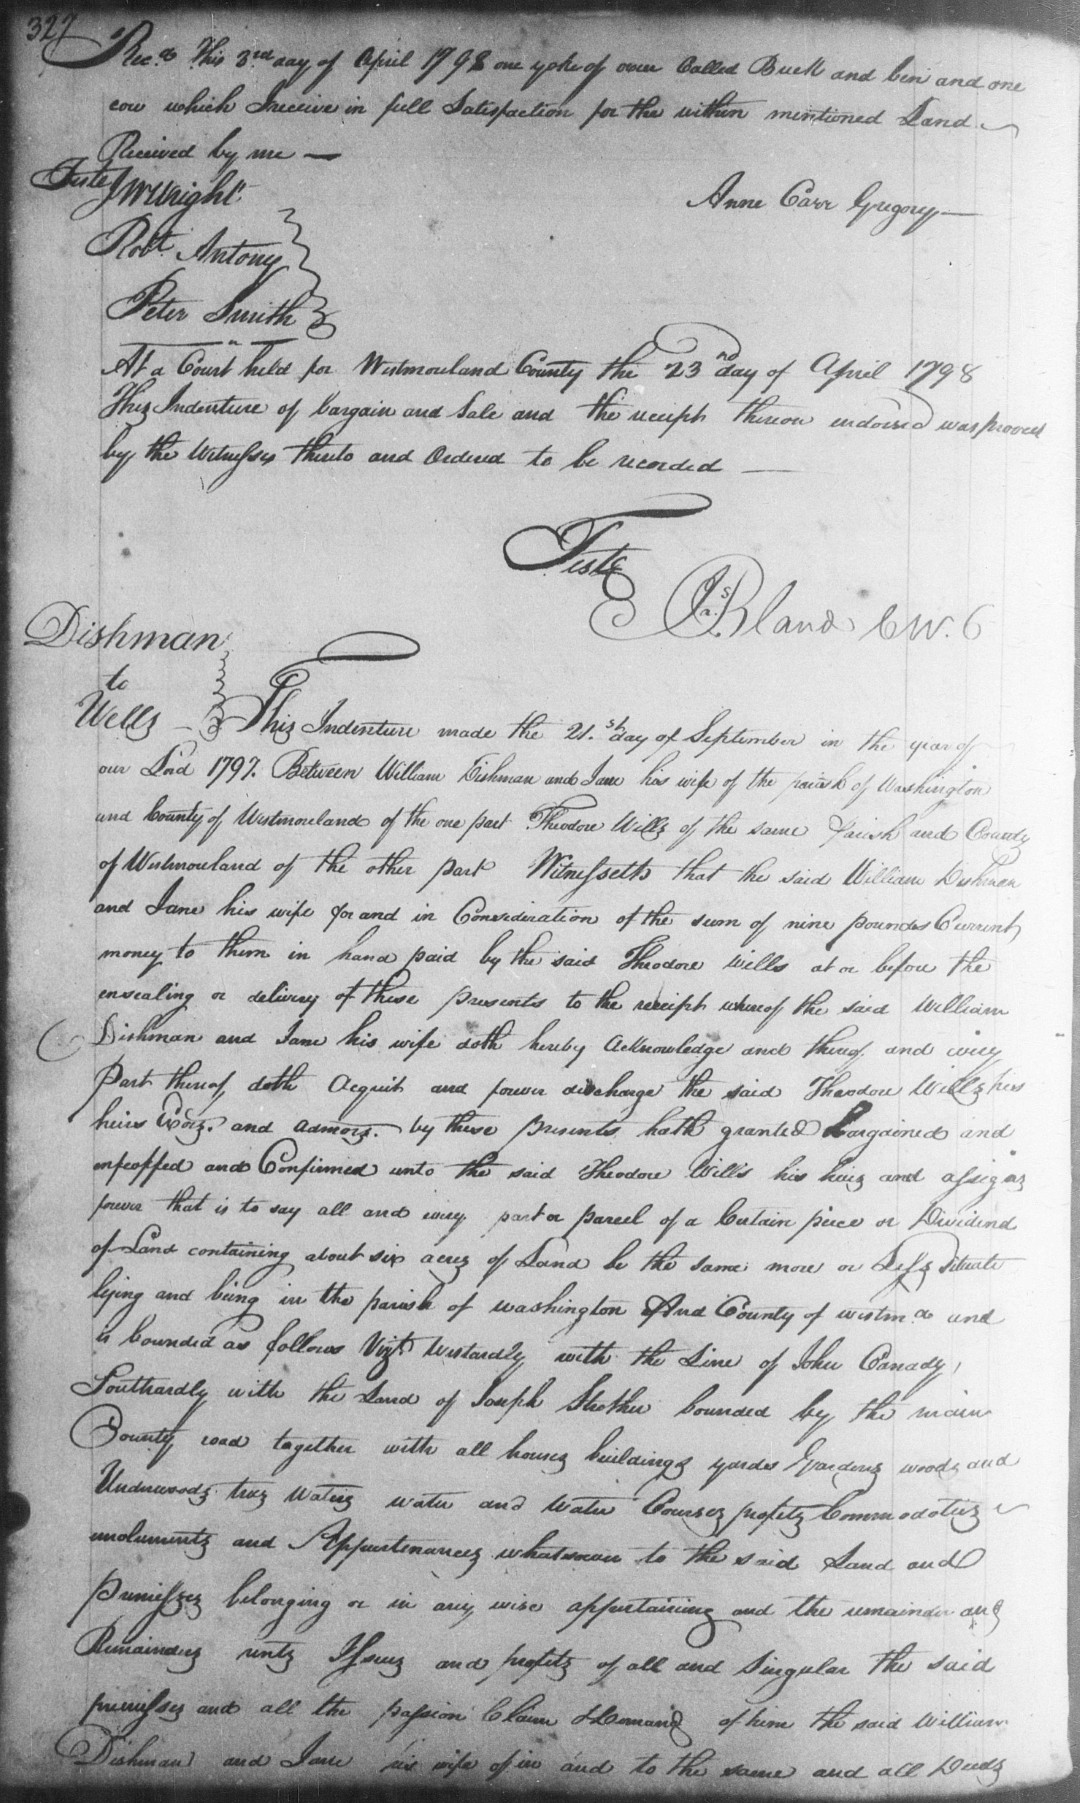 327
Rec.d This 3rd day of April 1798 one yoke of oxen Called Buck and ben and one
cow which I receive in full Satisfaction for the within mentioned Land
Received by me
Teste
J W Wright
Anne Carr Gregory
Robt. Antony
Peter Smith
At a Court held for Westmoreland County the 23rd day of April 1798
This Indenture of bargain and Sale and the receipt thereon endorsed was proved
by the Witnesses thereto and Ordered to be recorded
Teste
Jas. Bland C W. C
Dishman
to
Wells
This Indenture made the 21.st day of September in the year of
our Lord 1797. Between William Dishman and Jane his wife of the parish of Washington
and County of Westmoreland of the one part Theodore Wills of the same Parish and County
of Westmoreland of the other part Witnesseth that the said William Dishman
and Jane his wife for and in Consideration of the sum of nine pounds Current
money to them in hand paid by the said Theodore Wills at or before the
ensealing or delivery of these presents to the receipt whereof the said William
Dishman and Jane his wife doth hereby Acknowledge and thereof and every
Part thereof doth Acquit and forever discharge the said Theodore Wills his
heirs Exors. and admors. by these Presents hath granted Bargained and
enfeoffed and Confirmed unto the said Theodore Wills his heirs and assigns
forever that is to say all and every part or Parcel of a Certain piece or Dividend
of Land containing about six acres of Land be the same more or Less Situate
lying and being in the parish of washington And County of westm.d and
is bounded as follows Vizt. Westardly with the Line of John Canady
Southardly with the Land of Joseph Strother bounded by the main
County road together with all houses buildings yardes Gardens woods and
Underwoods trees Waters water and Water Courses profits Commodoties
emoluments and Appurtenances whatsoever to the said Land and
Premisses belonging or in any wise appertaining and the remainder and
Remainders rents Issues and profits of all and Singular the said
premisses and all the passion Claim & Demand of him the said William
Dishman and Jane his wife of in and to the same and all Deeds